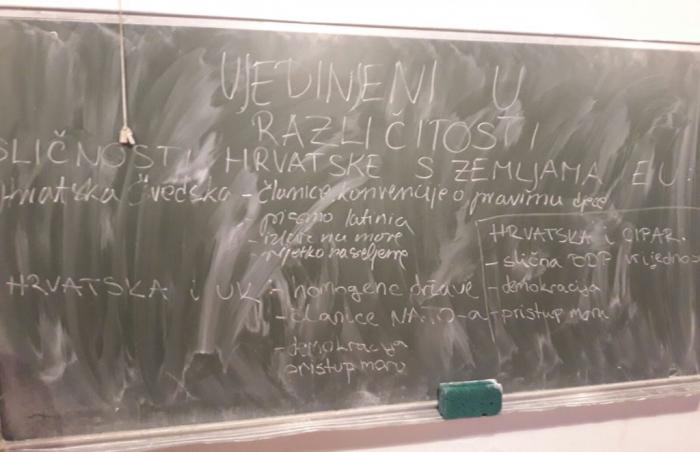 UJEDINJENI U
RAZLIČITOSTI
SLIČNOSTI HRVATSKE S ZEMLJAMA EU:
Hrvatska i Švedska - članice konvencije o pravima djece
- pismo latinica
- izlaz na more
- rijetko naseljene
HRVATSKA i UK - homogene države
- članice NATO-a
- demokracija
pristup moru
HRVATSKA i CIPAR
- slična BDP vrijednost
- demokracija
- pristup moru